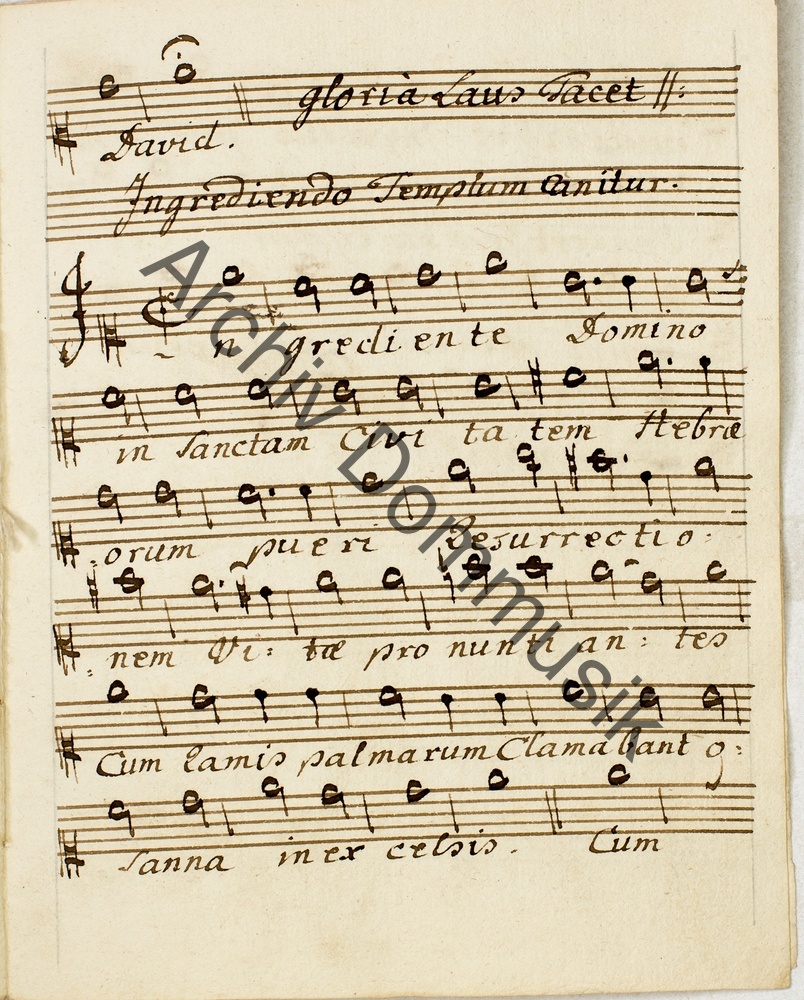 gloria Laus Tacet //:
David.
Ingrediendo Templum Canitur.
In gredi en te Domino
in Sanctam Civi ta tem Hebræ
orum pu e ri Resurrectio:
nem Vi: tæ pro nunti an: tes
Cum Ramis palmarum Clamabant o:
sanna in ex celsis. Cum
Archiv Dommusik